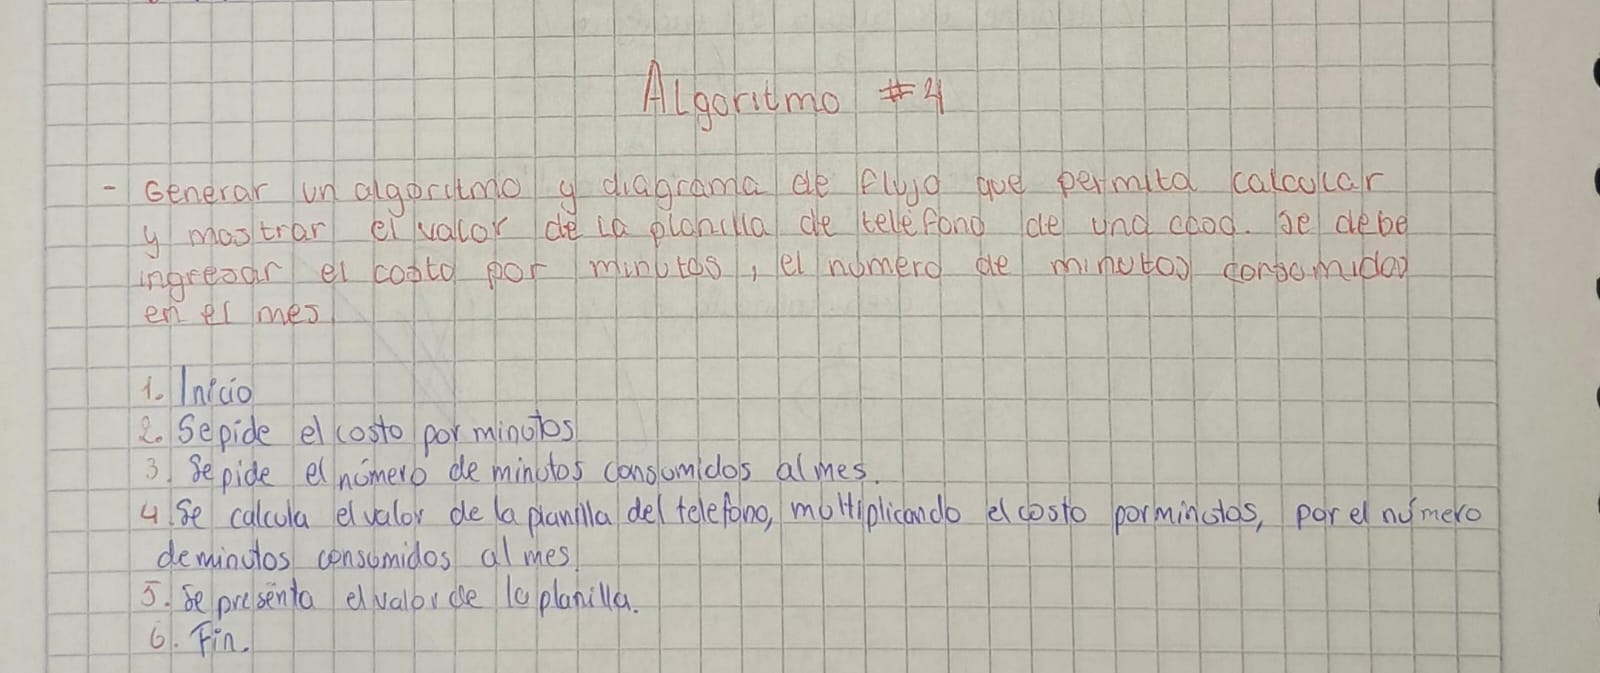 Algoritmo #4
- Generar un algoritmo y diagrama de flujo que permita calcular
y mostrar el valor de la planilla de teléfono de una casa. Se debe
ingresar el costo por minutos, el número de minutos consumidos
en el mes
1. Inicio
2. Se pide el costo por minutos
3. Se pide el número de minutos consumidos al mes.
4. Se calcula el valor de la planilla del telefono, multiplicando el costo por minutos, por el número
de minutos consumidos al mes.
5. Se presenta el valor de la planilla.
6. Fin.